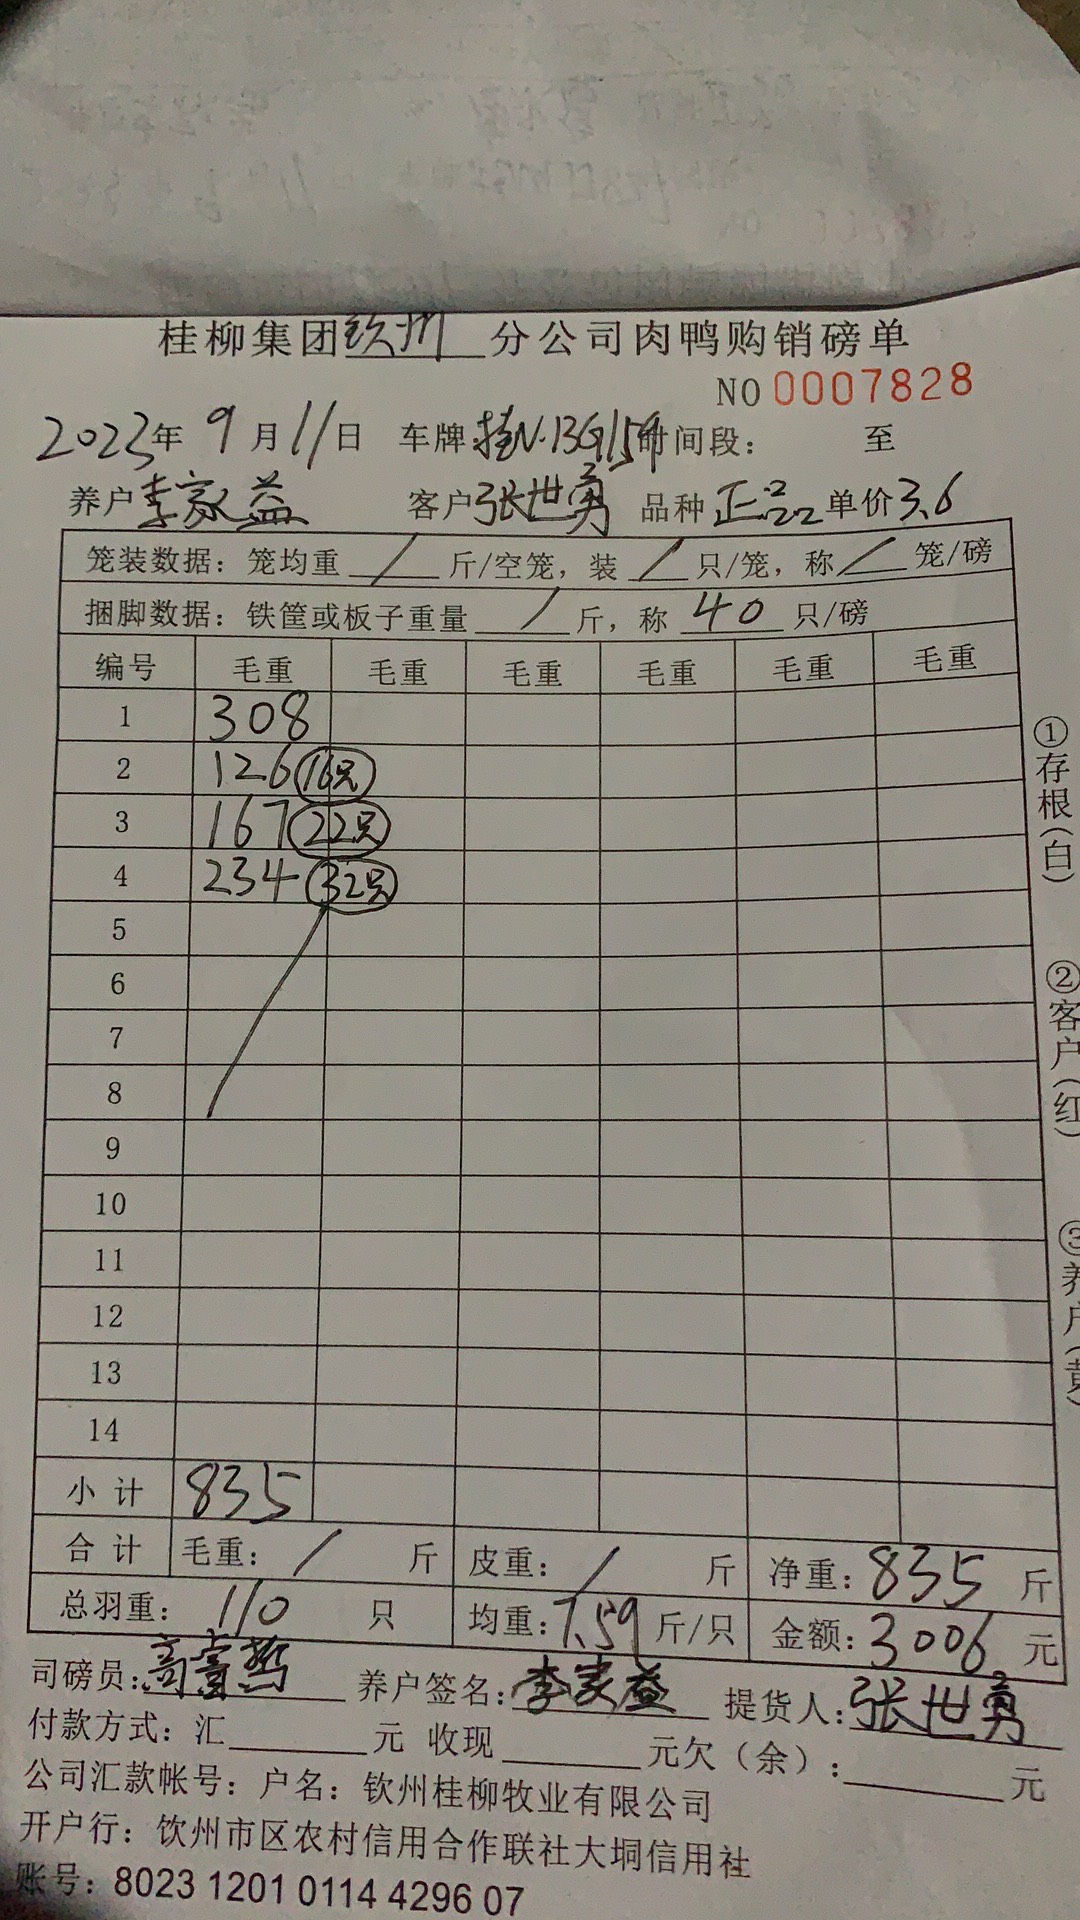 桂柳集团钦州分公司肉鸭购销磅单
NO 0007828
2023年 9月11日 车牌:桂N·13G159 时间段: 至
养户李家益 客户张世勇 品种正品 单价3.6
笼装数据：笼均重 / 斤/空笼，装 / 只/笼，称 / 笼/磅
捆脚数据：铁筐或板子重量 / 斤，称 40 只/磅
编号 毛重 毛重 毛重 毛重 毛重 毛重
1 308
2 126 16只
3 167 22只
4 234 32只
5
6
7
8
9
10
11
12
13
14
小计 835
合计 毛重： / 斤 皮重： / 斤 净重：835 斤
总羽重： 110 只 均重：7.59 斤/只 金额：3006 元
司磅员： 养户签名：李家益 提货人：张世勇
付款方式：汇 元 收现 元欠（余）： 元
公司汇款帐号：户名：钦州桂柳牧业有限公司
开户行：钦州市区农村信用合作联社大垌信用社
账号：8023 1201 0114 4296 07
①存根(白)
②客户(红)
③养户(黄)